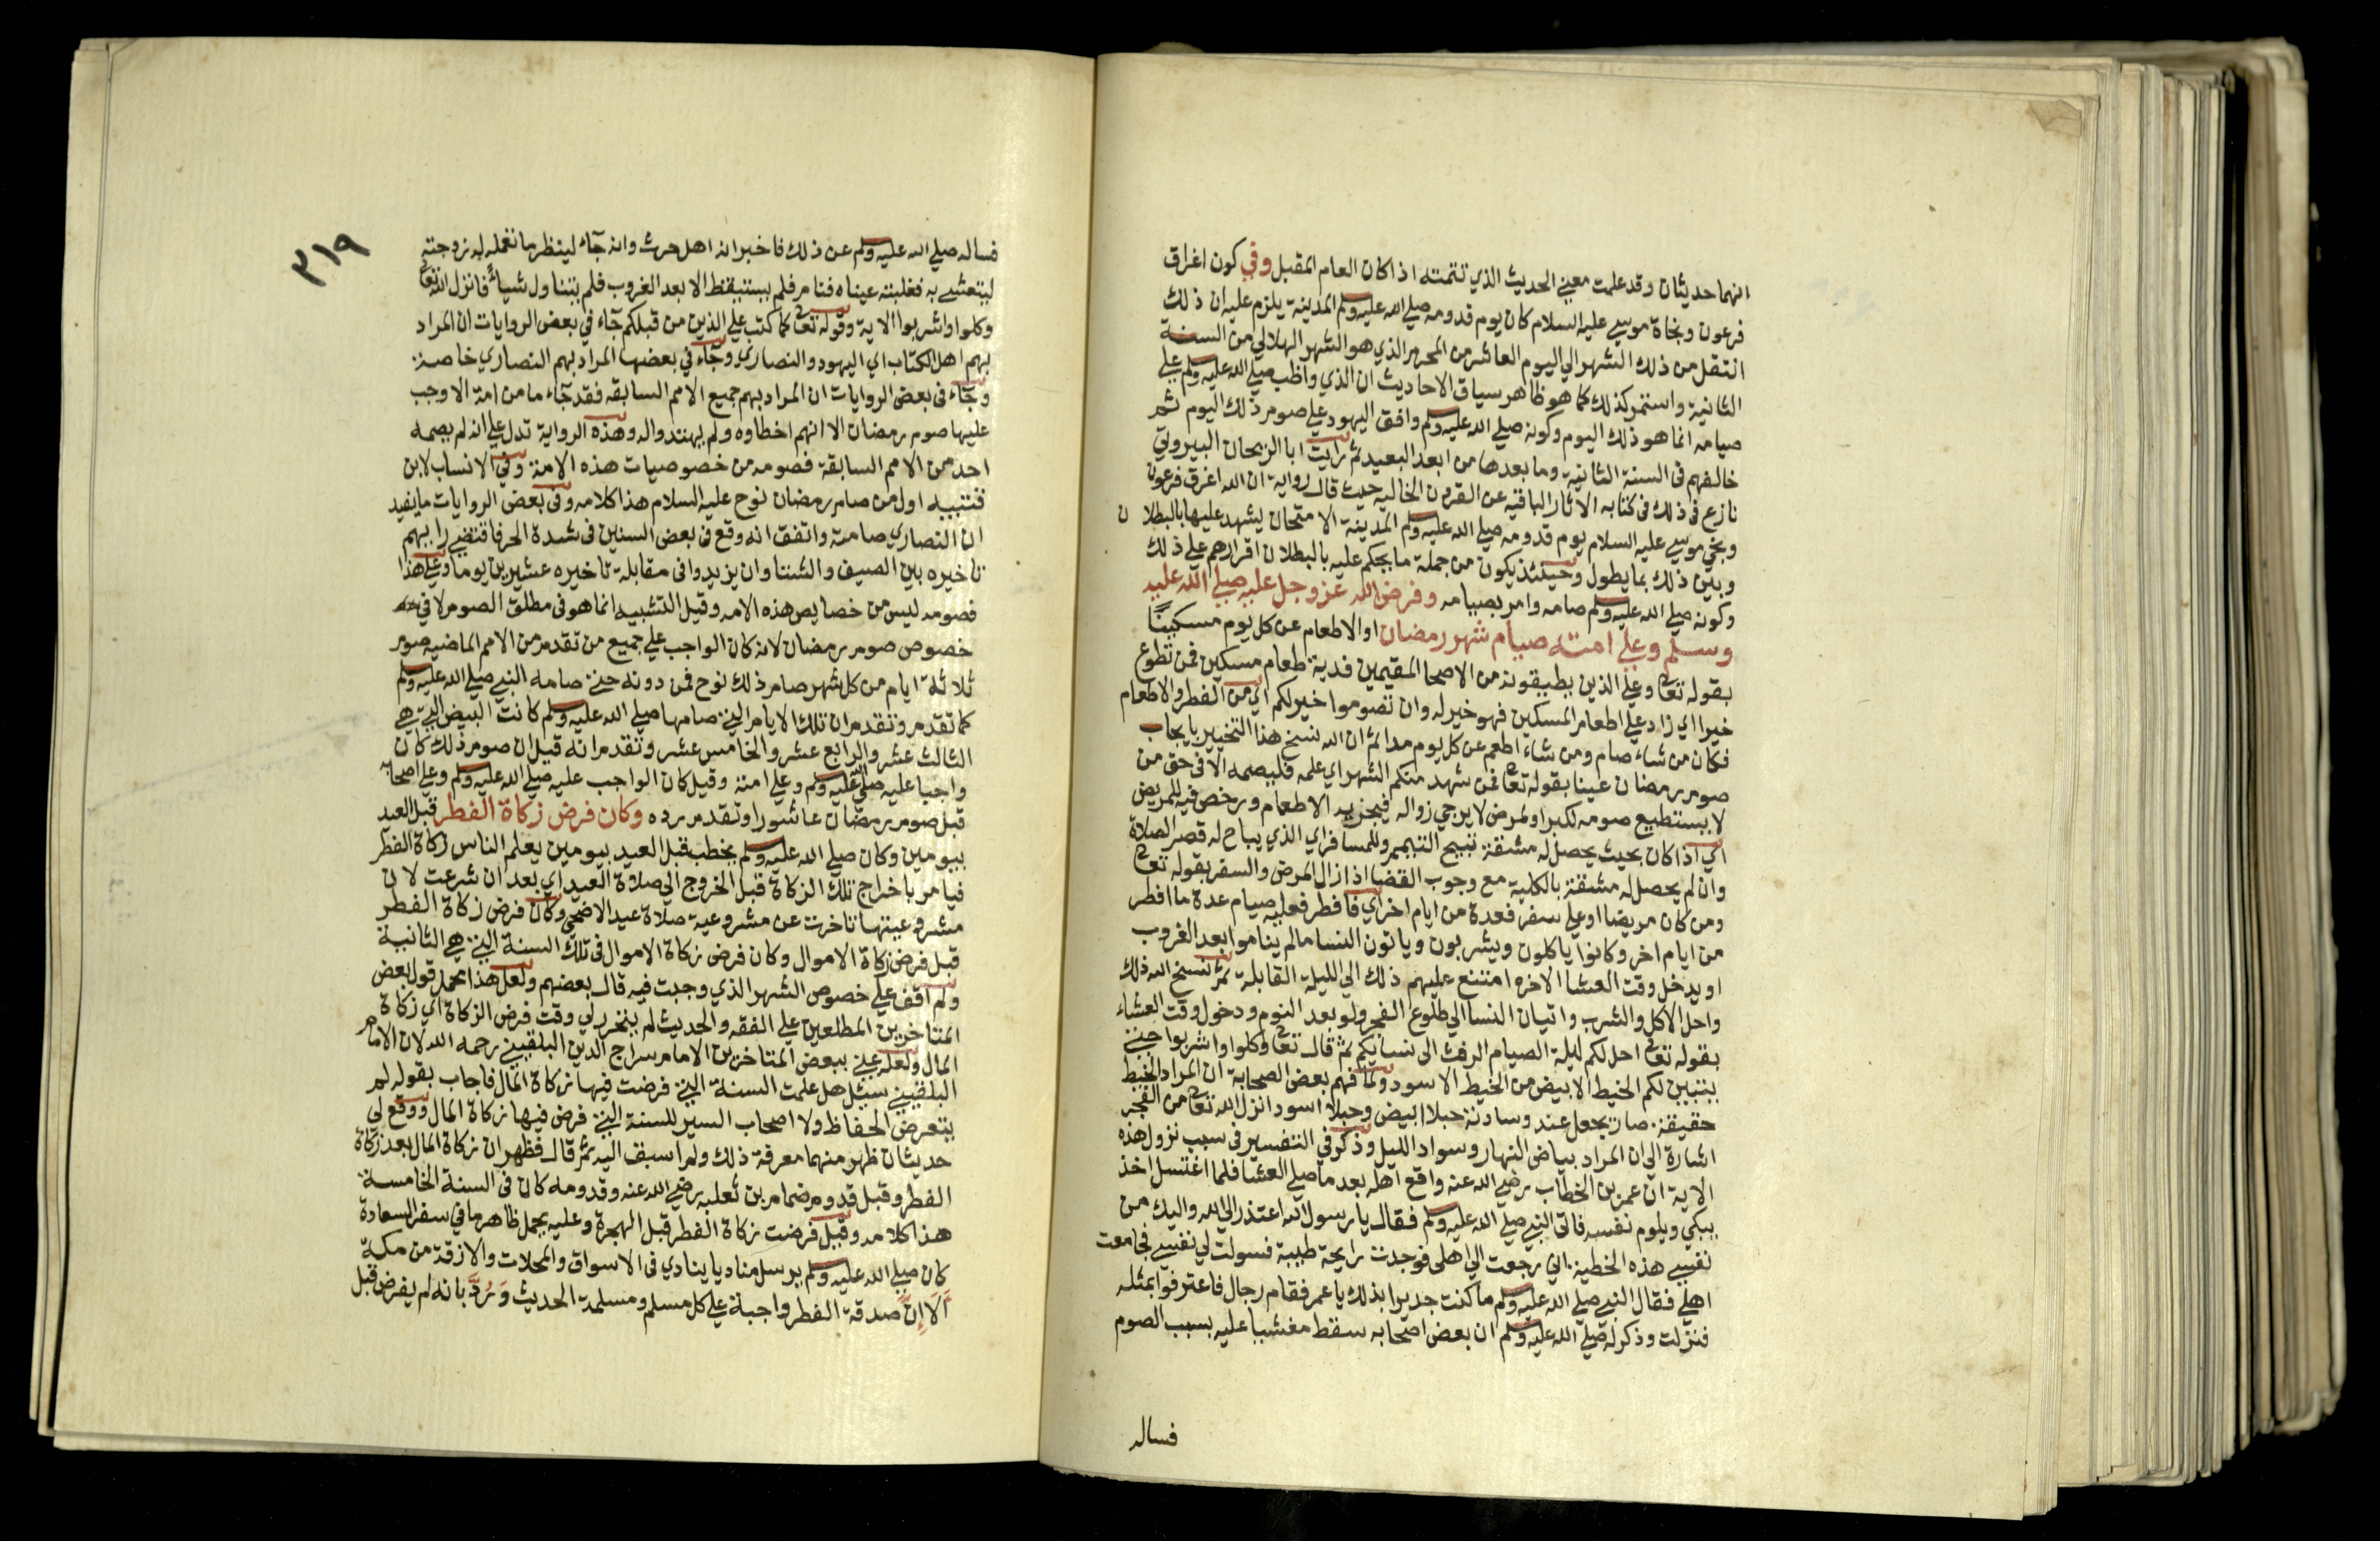 انهما حديثان وقد علمت معني الحديث الذي تتمته اذا كان العام المقبل وفي كون اغراق
فرعون ونجاة موسي عليه السلام كان يوم قدومه صلي الله عليه وسلم المدينة يلزم عليه ان ذلك
انتقل من ذلك الشهر الي اليوم العاشر من المحرم الذي هو الشهر الهلالي من السنة
الثانية واستمر كذلك كما هو ظاهر سياق الاحاديث ان الذي واظب صلي الله عليه وسلم علي
صيامه انما هو ذلك اليوم وكونه صلي الله عليه وسلم وافق اليهود علي صوم ذلك اليوم ثم
خالفهم في السنة الثانية وما بعدها من ابعد البعيد ثم رايت ابا الريحان البيروني
نازع في ذلك في كتابه الاثار الباقيه عن القرون الخاليه حيث قال رواية ان الله اغرق فرعون
ونجي موسي عليه السلام يوم قدومه صلي الله عليه وسلم المدينة الامتحان يشهد عليها بالبطلان
وبين ذلك بما يطول وحينئذ يكون من جملة ما يحكم عليه بالبطلان اقرارهم علي ذلك
وكونه صلي الله عليه وسلم صامه وامر بصيامه وفرض الله عز وجل عليه صلي الله عليه
وسلم وعلي امته صيام شهر رمضان او الاطعام عن كل يوم مسكينًا
بقوله تعالي وعلي الذين يطيقونه من الاصحا المقيمين فدية طعام مسكين فمن تطوع
خيرا اي زاد علي اطعام المسكين فهو خير له وان تصوموا خير لكم اي من الفطر والاطعام
فكان من شاء صام ومن شاء اطعم عن كل يوم مدا ثم ان الله نسخ هذا التخيير بايجاب
صوم رمضان عينا بقوله تعالي فمن شهد منكم الشهر اي علمه فليصمه الا في حق من
لا يستطيع صومه لكبر او لمرض لا يرجي زواله فيجزيه الاطعام ورخص فيه للمريض
اي اذا كان بحيث يحصل له مشقة تبيح التيمم وللمسافر اي الذي يباح له قصر الصلاة
وان لم يحصل له مشقة بالكلية مع وجوب القضا اذا زال المرض والسفر بقوله تعالي
ومن كان مريضا او علي سفر فعدة من ايام اخر اي فافطر فعليه صيام عدة ما افطر
من ايام اخر وكانوا ياكلون ويشربون وياتون النسا ما لم يناموا بعد الغروب
او يدخل وقت العشا الاخره امتنع عليهم ذلك الي الليلة القابلة ثم نسخ الله ذلك
واحل الاكل والشرب واتيان النسا الي طلوع الفجر ولو بعد النوم ودخول وقت العشاء
بقوله تعالي احل لكم ليلة الصيام الرفث الي نسايكم ثم قال تعالي وكلوا واشربوا حتي
يتبين لكم الخيط الابيض من الخيط الاسود ولما فهم بعض الصحابة ان المراد الخيط
حقيقة صار يجعل عند وسادته حبلا ابيض وحبلا اسود انزل الله تعالي من الفجر
اشارة الي ان المراد بياض النهار وسواد الليل وذكر في التفسير في سبب نزول هذه
الاية ان عمر بن الخطاب رضي الله عنه واقع اهله بعد ما صلي العشا فلما اغتسل اخذ
يبكي ويلوم نفسه فاتي النبي صلي الله عليه وسلم فقال يا رسول الله اعتذر الي الله واليك من
نفسي هذه الخطية اني رجعت الي اهلي فوجدت رايحة طيبة فسولت لي نفسي فجامعت
اهلي فقال النبي صلي الله عليه وسلم ما كنت جديرا بذلك يا عمر فقام رجال فاعترفوا بمثله
فنزلت وذكر له صلي الله عليه وسلم ان بعض اصحابه سقط مغشيا عليه بسبب الصوم
فساله
٣١٩
فساله صلي الله عليه وسلم عن ذلك فاخبر انه اهل حرث وانه جاء لينظر ما تعمله له زوجته
ليتعشي به فغلبته عيناه فنام فلم يستيقظ الا بعد الغروب فلم يتناول شياء فانزل الله تعالي
وكلوا واشربوا الاية وقوله تعالي كما كتب علي الذين من قبلكم جاء في بعض الروايات ان المراد
بهم اهل الكتاب اي اليهود والنصاري وجاء في بعضها المراد بهم النصاري خاصة
وجاء في بعض الروايات ان المراد بهم جميع الامم السابقه فقد جاء ما من امة الا وجب
عليها صوم رمضان الا انهم اخطاوه ولم يهتدوا له وهذه الرواية تدل علي انه لم يصمه
احد من الامم السابقة فصومه من خصوصيات هذه الامة وفي الانساب لابن
قتيبه اول من صام رمضان نوح عليه السلام هذا كلامه وفي بعض الروايات ما يفيد
ان النصاري صامته واتفق انه وقع في بعض السنين في شدة الحر فاقتضي رايهم
تاخيره بين الصيف والشتا وان يزيدوا في مقابلة تاخيره عشرين يوما وعلي هذا
فصومه ليس من خصايص هذه الامه وقيل التشبيه انما هو في مطلق الصوم لا في
خصوص صوم رمضان لانه كان الواجب علي جميع من تقدم من الامم الماضيه صوم
ثلاثة ايام من كل شهر صام ذلك نوح فمن دونه حتي صامه النبي صلي الله عليه وسلم
كما تقدم وتقدم ان تلك الايام التي صامها صلي الله عليه وسلم كانت البيض التي هي
الثالث عشر والرابع عشر والخامس عشر وتقدم انه قيل ان صوم ذلك كان
واجبا عليه صلي الله عليه وسلم وعلي امته وقيل كان الواجب عليه صلي الله عليه وسلم وعلي اصحابه
قبل صوم رمضان عاشورا وتقدم رده وكان فرض زكاة الفطر قبل العيد
بيومين وكان صلي الله عليه وسلم يخطب قبل العيد بيومين يعلم الناس زكاة الفطر
فيامر باخراج تلك الزكاة قبل الخروج الي صلاة العيد اي بعد ان شرعت لان
مشروعيتها تاخرت عن مشروعية صلاة عيد الاضحي وكان فرض زكاة الفطر
قبل فرض زكاة الاموال وكان فرض زكاة الاموال في تلك السنة التي هي الثانية
ولم اقف علي خصوص الشهر الذي وجبت فيه قال بعضهم ولعل هذا محمل قول بعض
المتاخرين المطلعين علي الفقه والحديث لم يتحرر لي وقت فرض الزكاة اي زكاة
المال ولعله عني ببعض المتاخرين الامام سراج الدين البلقيني رحمه الله لان الامام
البلقيني سئل هل علمت السنة التي فرضت فيها زكاة المال فاجاب بقوله لم
يتعرض الحفاظ ولا اصحاب السير للسنة التي فرض فيها زكاة المال ووقع لي
حديثان ظهر منهما معرفة ذلك ولم اسبق اليه ثم قال فظهر ان زكاة المال بعد زكاة
الفطر وقبل قدوم ضمام بن ثعلبه رضي الله عنه وقدومه كان في السنة الخامسة
هذا كلامه وقيل فرضت زكاة الفطر قبل الهجرة وعليه يحمل ظاهر ما في سفر السعادة
كان صلي الله عليه وسلم يرسل مناديا ينادي في الاسواق والمحلات والازقة من مكة
اَلاَ اِنَّ صدقة الفطر واجبة علي كل مسلم ومسلمة الحديث وَرُدَّ بانه لم يفرض قبل